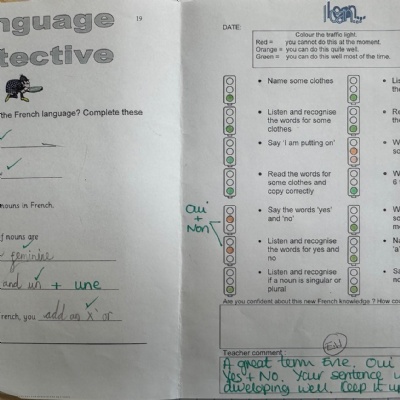 nguage
19
tective
the French language? Complete these
nouns in French.
f nouns are
feminine
and un + une
rench, you add an x or
I can...
DATE:
Colour the traffic light.
Red = you cannot do this at the moment.
Orange = you can do this quite well.
Green = you can do this well most of the time.
• Name some clothes
• Listen and recognise
the words for some
clothes
• Say 'I am putting on'
• Read the words for
some clothes and
copy correctly
Oui
+
Non
• Say the words 'yes'
and 'no'
• Listen and recognise
the words for yes and
no
• Listen and recognise
if a noun is singular or
plural
Are you confident about this new French knowledge ? How cou
Teacher comment:
A great term Evie. Oui
Yes + No. Your sentence
developing well. Keep it up